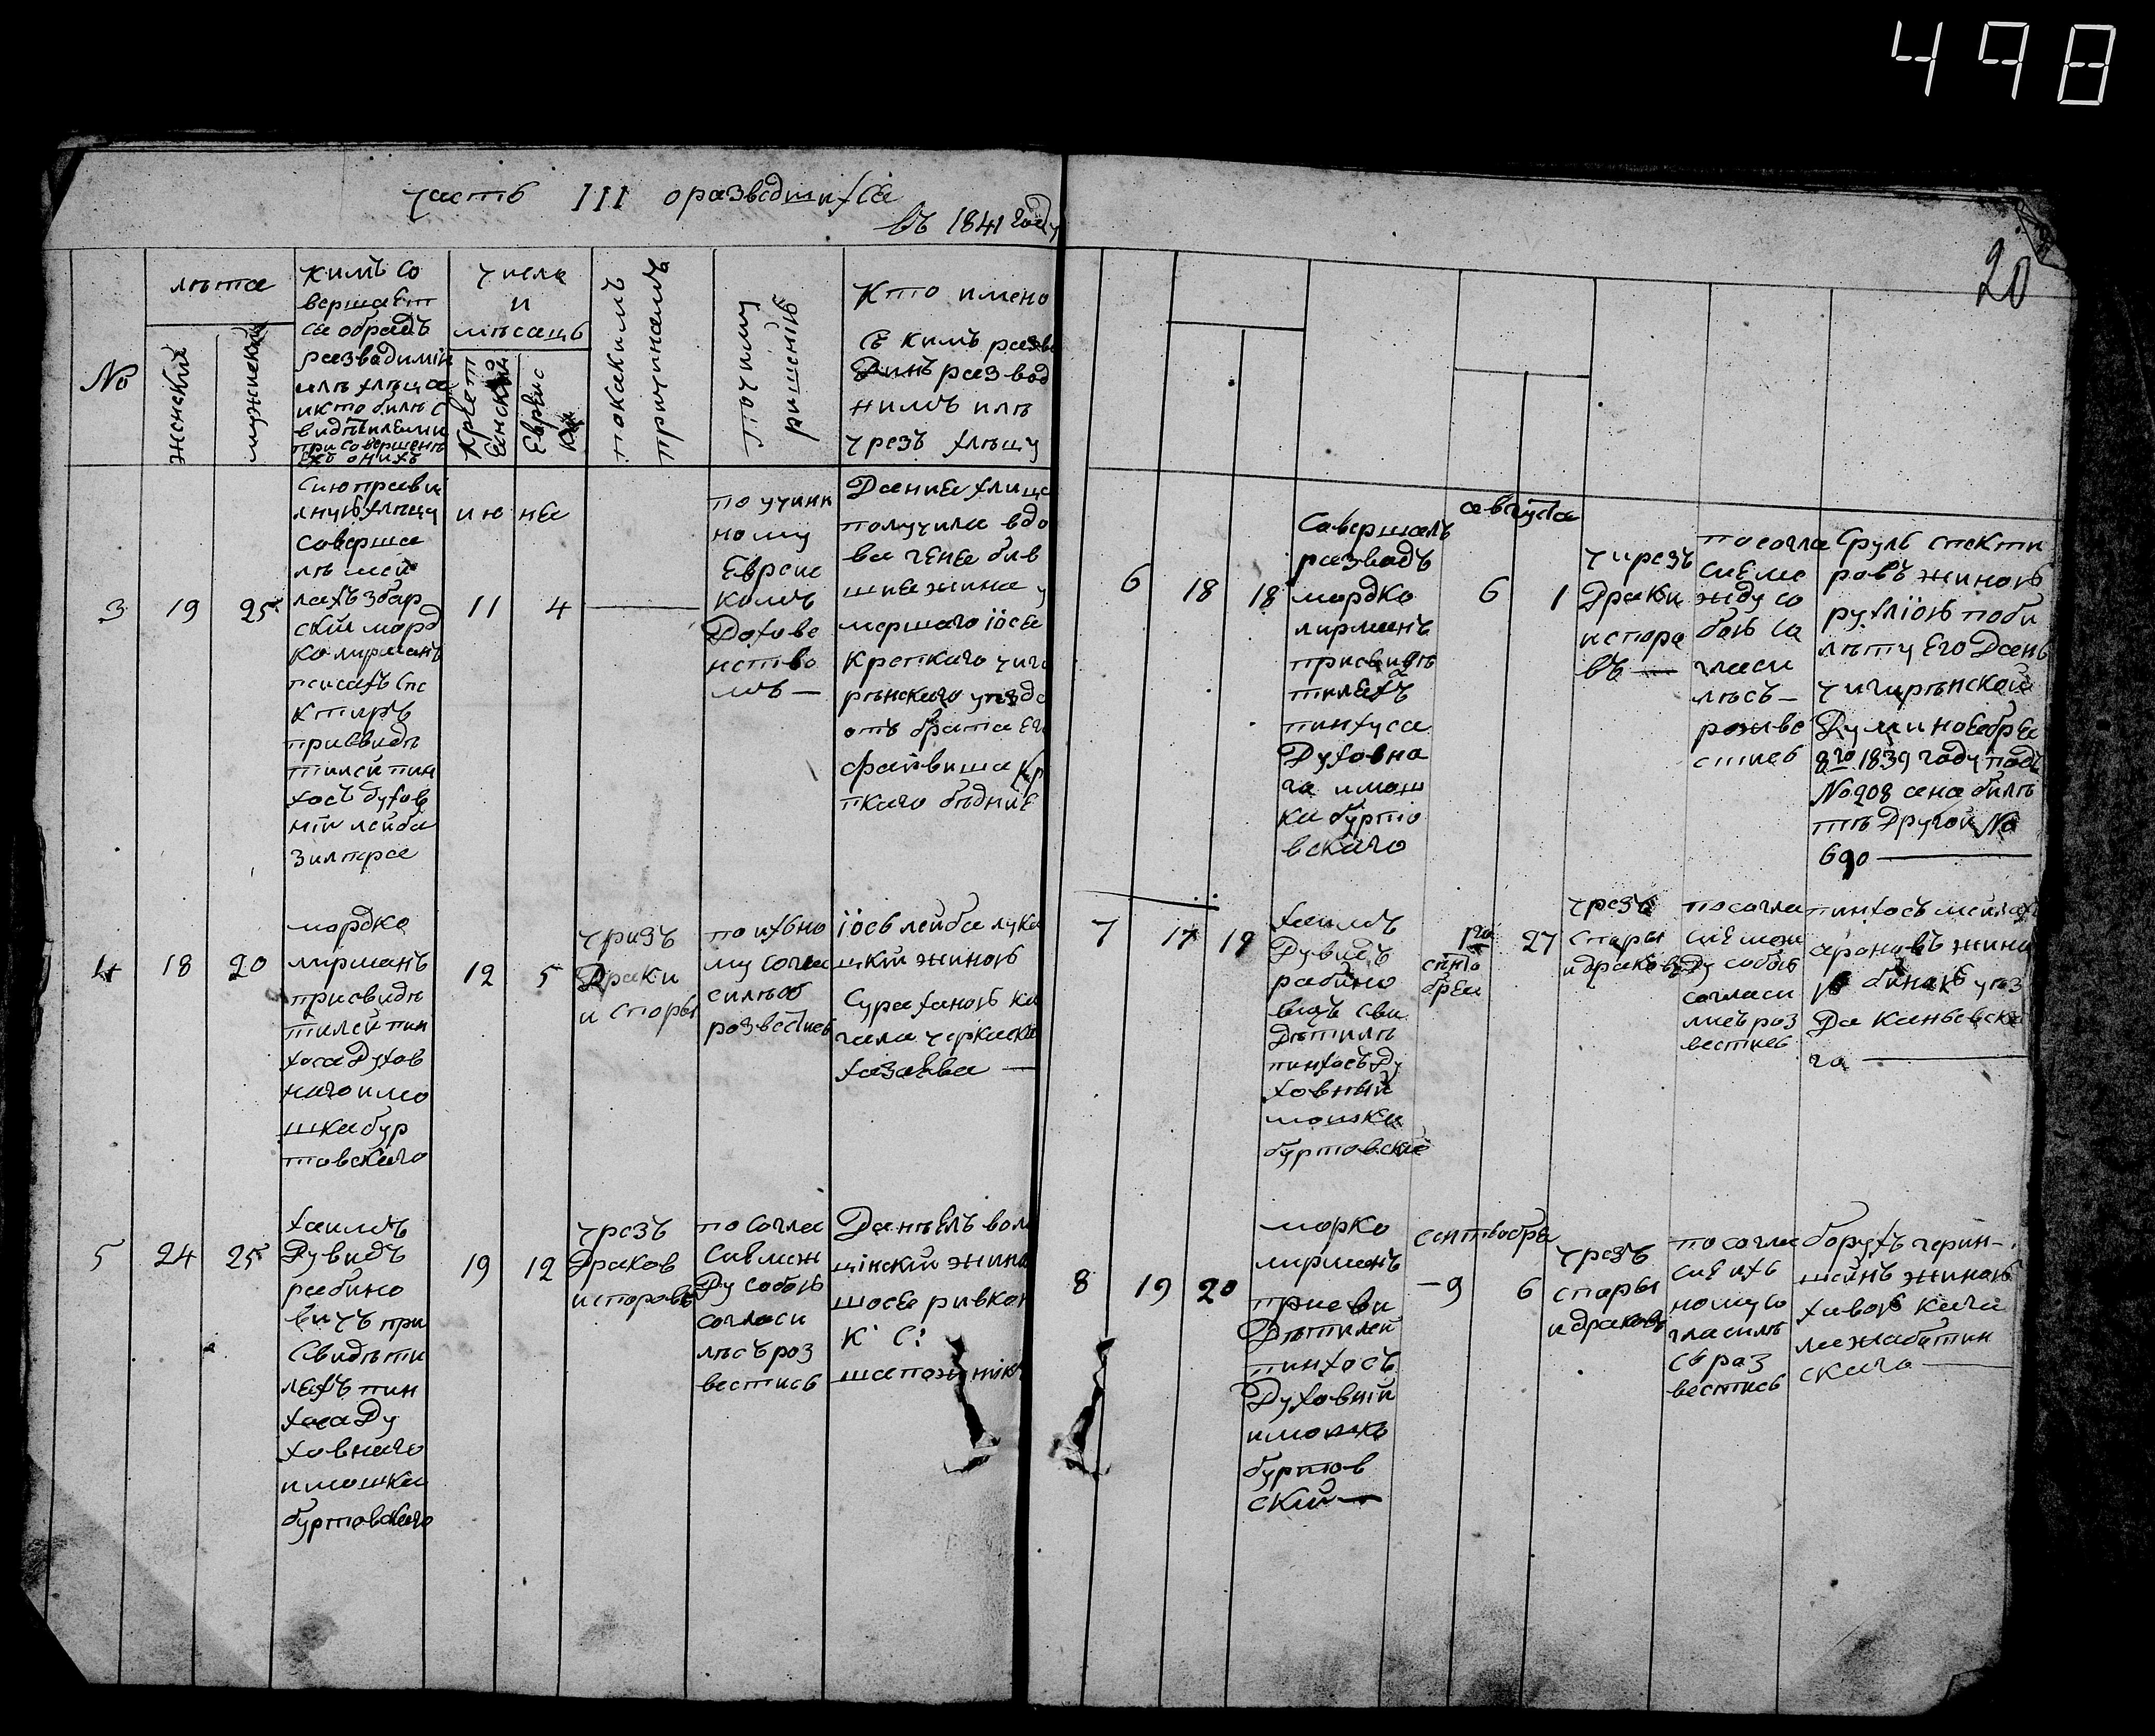 498
часть III о разведшихся
въ 1841 году
20
No
лѣта
женский
мужский
кимъ со
вершает
ся обрадъ
развадимій
илѣ хлѣца
и кто билѣ с
видѣтилеми
при совершенѣ
числа
и
мѣсацъ
Крест
Евреис
по какимъ
причинамъ
по чиму
ришенію
Кто имено
с кимъ разве
развод
нимъ илѣ
чрезъ хлѣцу
3
19
25
Сиюправи
лную хлѣцу
саверша
лѣ меи
лахъ збар
скій морд
ко лирманъ
песахъ спе
ктиръ
присвидѣ
тилей пин
хосъ духов
ній лейба
зилпра
июнеа
11
4
по учин
ному
Евреис
комъ
Духове
нство
мъ —
Даниа хлица
получила вдо
ва генеа бив
шиа жина у
мершаго іосеа
Крепкаго чиги
рѣнскаго уѣзда
отъ брата Его
файвиша кр
пкаго бѣдниЕ
4
18
20
мордко
лирманъ
присвидѣ
тилей пин
хоса Духов
наго и мо
шка бур
товскаго
12
5
чризъ
Драки
и споры
по ихъно
му согла
силѣсъ
розвестись
іось лейба лука
цкій жиною
Сура ханою ка
гала черкаска
хазаева —
5
24
25
хаимъ
Дувидъ
рабино
вичъ при
Свидѣти
лехъ пин
хоса Ду
ховнаго
и мошка
буртовскаго
19
12
чрезъ
Драков
и споровъ
по согла
сию меж
Ду собою
согласи
лѣсъ роз
вестись
Данѣелъ вол
щінский жино
шоса ривкою
К С:
шапожнік
6
18
18
Савершалъ
развадъ
мордко
лирманъ
присвидѣ
тилехъ
пинхуса
Духовна
га и мош
ка бурто
вскаго
августа
6
1
чирезъ
Драки
и споро
въ —
по согла
сиЕ ме
жду со
бою са
гласи
лѣсъ —
розве
стись
Сруль спекти
ровъ жиною
рухлѣю по би
лѣту Его Дань
чигирѣнской
Думи ноебреа
8го 1839 году подъ
No 208 а на билѣ
тѣ Другой No
690 —
7
17
19
хаимъ
Дувидъ
рабино
вичъ сви
Дѣтилѣ
пинхосъ Ду
ховный
мошка
буртовский
1го
сенте
бреа
27
чрезъ
споры
и драковъ
по согла
сие меж
Ду собою
согласи
лись роз
вестись
пинхосъ меилах
ароновъ жина
ю бинаю уѣз
Да Каневска
га —
8
19
20
морко
лирманъ
присви
Дѣтилей
пинхосъ
Духовній
и мошкъ
буртов
скій —
сентьобра
— 9
6
чрезъ
споры
и драковъ
по согла
сиЕ ихъ
ному со
гласилѣ
сь раз
вестись
борухъ герин-
шейнъ жиною
хивою кага
ла жаботин
скаго —